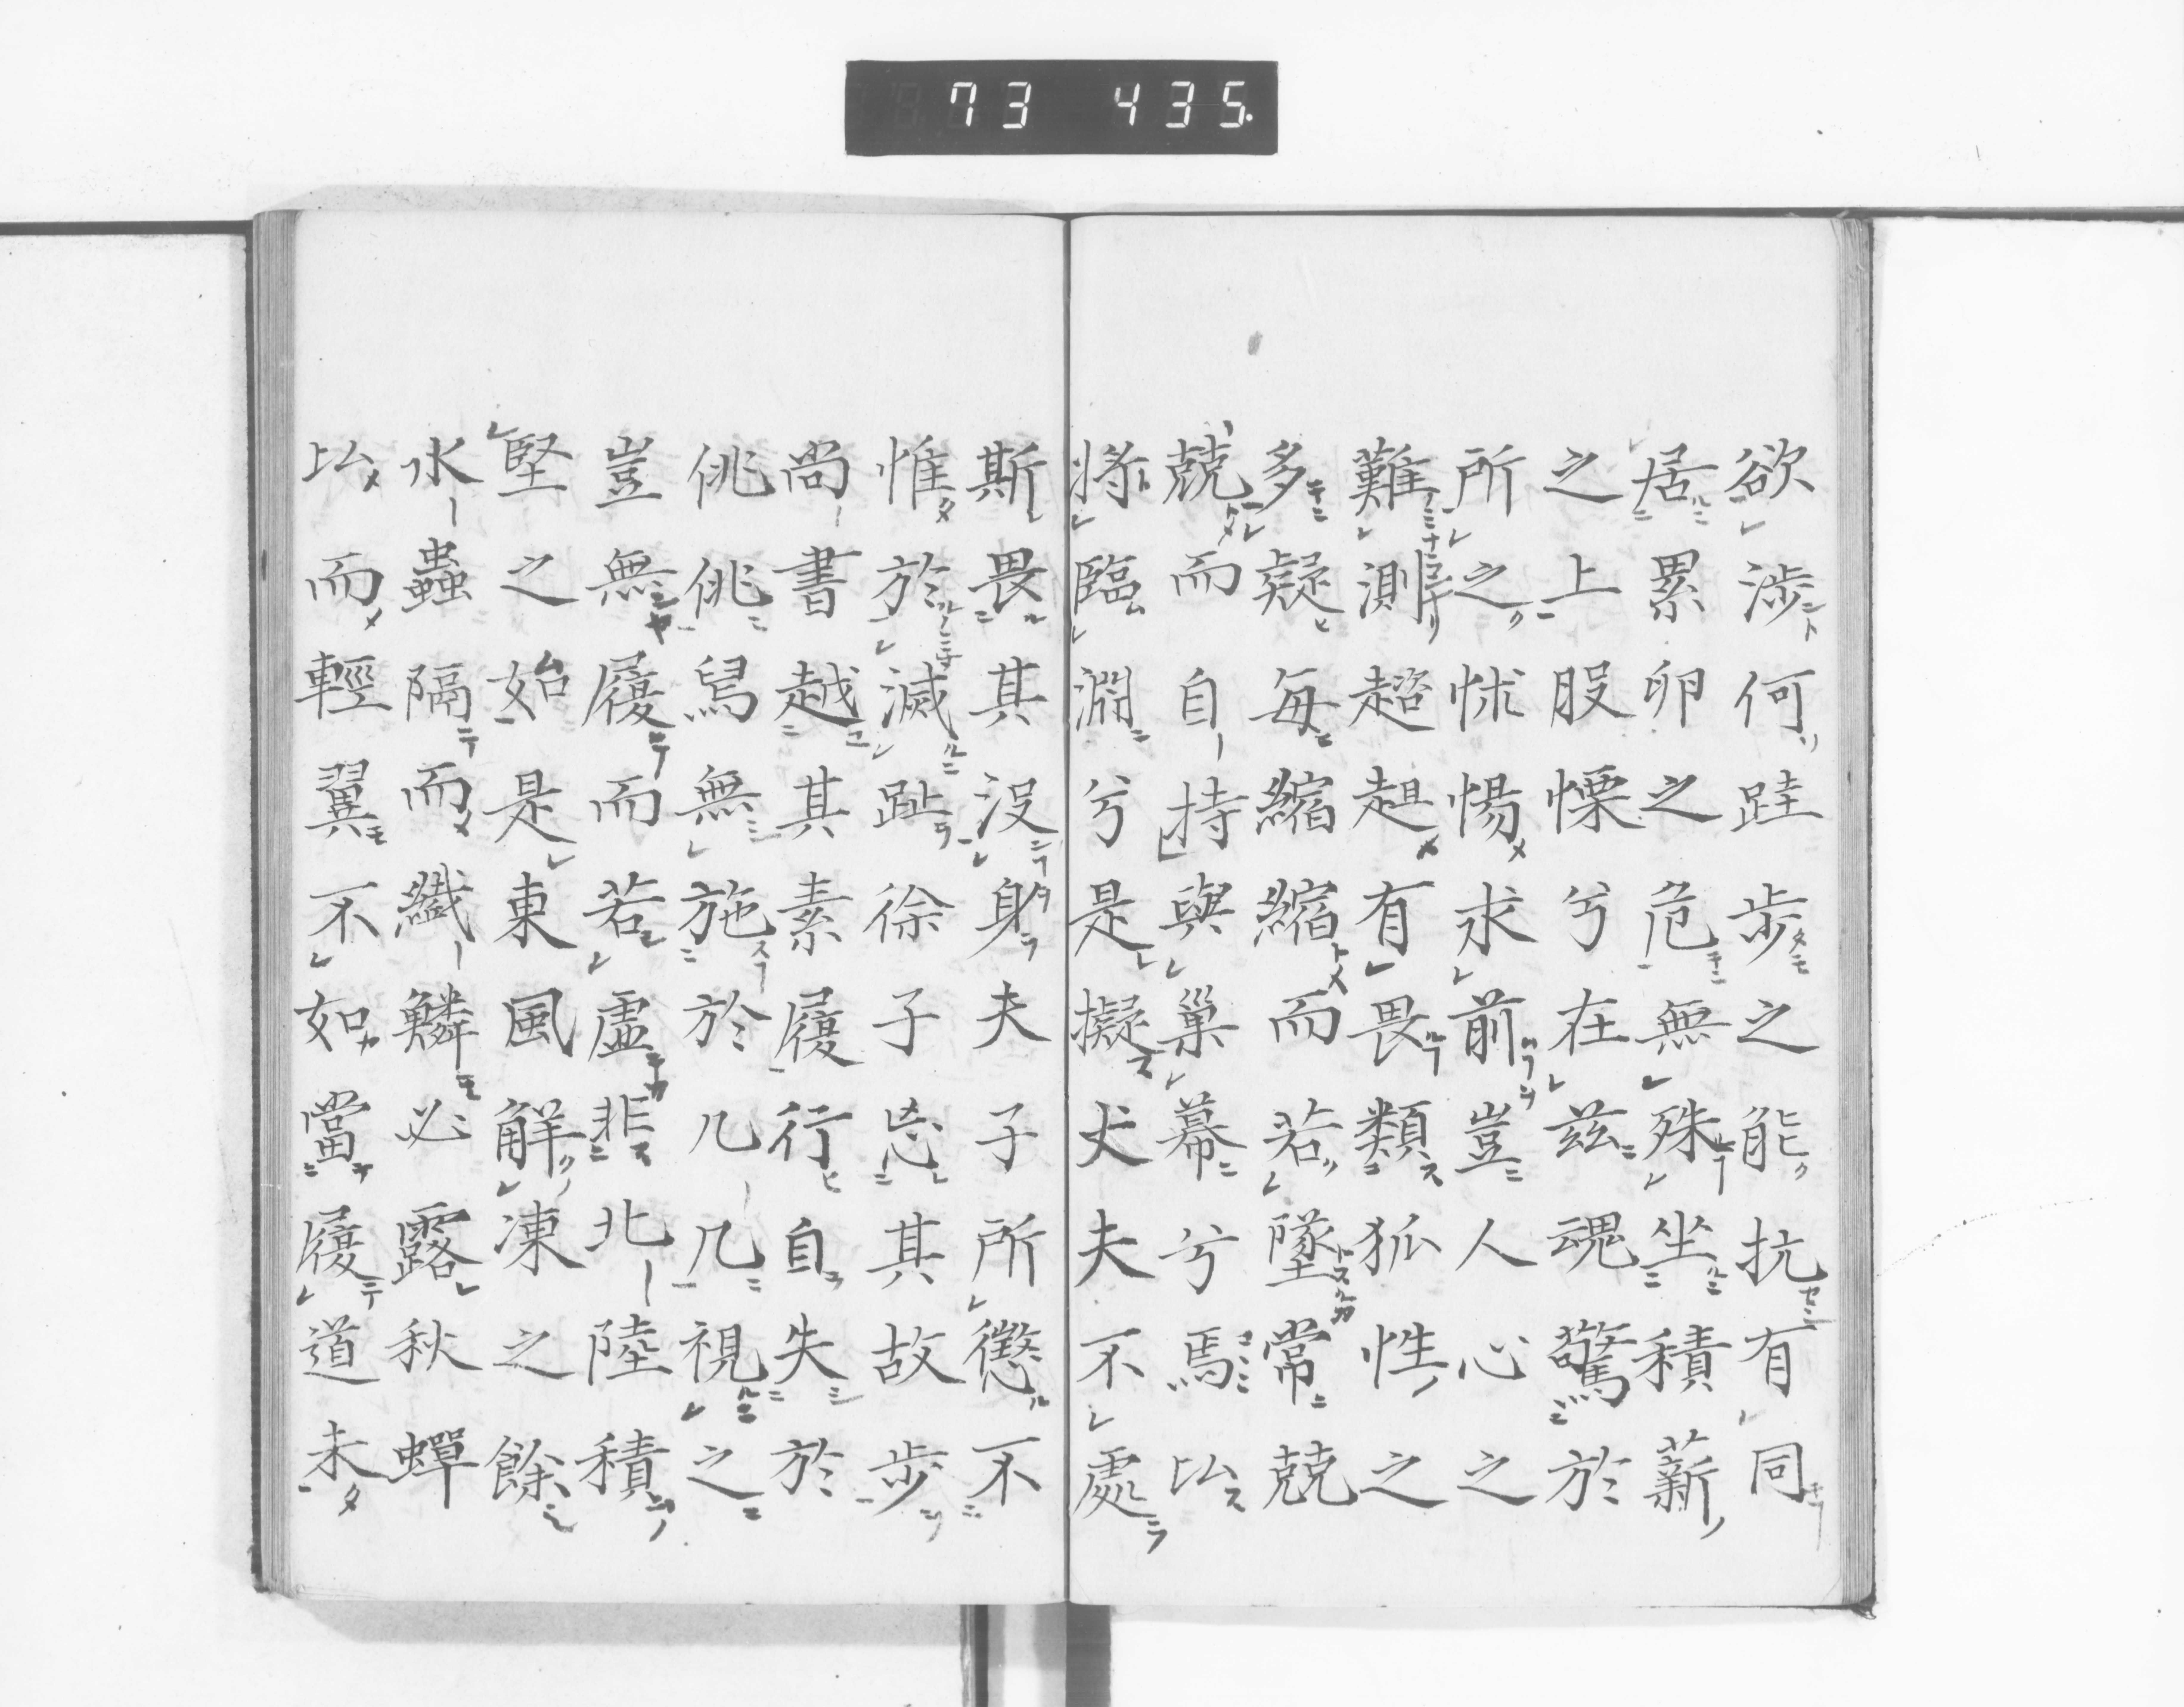 73 435.
欲涉何跬步之能抗有同
居累卵之危無殊坐積薪
之上股慄兮在茲魂驚於
所之怵惕求前豈人心之
難測趦趄有畏類狐性之
多疑每縮縮而若墜常兢
兢而自持與巢幕兮焉比
將臨淵兮是擬大夫不處
斯畏其沒身夫子所懲不
惟於滅趾徐子忘其故步
尚書越其素履行自失於
佻佻舄無施於几几視之
豈無履而若虛非北陸積
堅之始是東風解凍之餘
水蟲隔而纖鱗必露秋蟬
比而輕翼不如當履道未